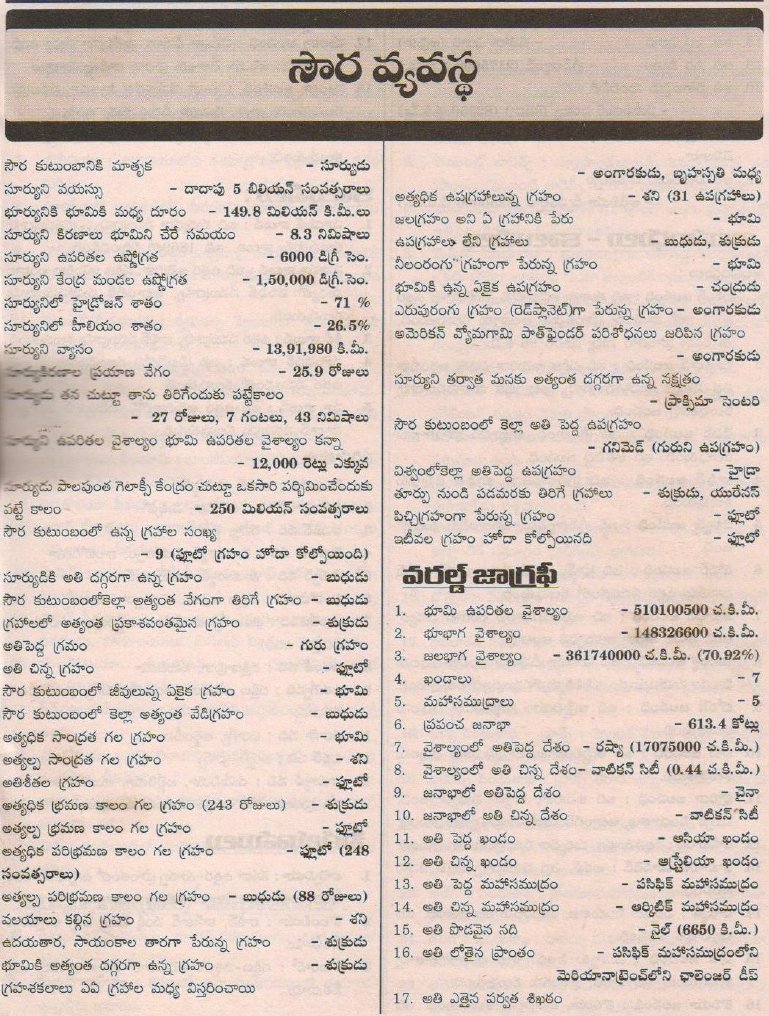 సౌర వ్యవస్థ
సౌర కుటుంబానికి మాతృక - సూర్యుడు
సూర్యుని వయస్సు - దాదాపు 5 బిలియన్ సంవత్సరాలు
భూర్యునికి భూమికి మధ్య దూరం - 149.8 మిలియన్ కి.మీ.లు
సూర్యుని కిరణాలు భూమిని చేరే సమయం - 8.3 నిమిషాలు
సూర్యుని ఉపరితల ఉష్ణోగ్రత - 6000 డిగ్రీ సెం.
సూర్యుని కేంద్ర మండల ఉష్ణోగ్రత - 1,50,000 డిగ్రీ.సెం.
సూర్యునిలో హైడ్రోజన్ శాతం - 71 %
సూర్యునిలో హీలియం శాతం - 26.5%
సూర్యుని వ్యాసం - 13,91,980 కి.మీ.
సూర్యకిరణాల ప్రయాణ వేగం - 25.9 రోజులు
సూర్యుడు తన చుట్టూ తాను తిరిగేందుకు పట్టేకాలం
- 27 రోజులు, 7 గంటలు, 43 నిమిషాలు
సూర్యుని ఉపరితల వైశాల్యం భూమి ఉపరితల వైశాల్యం కన్నా
- 12,000 రెట్లు ఎక్కువ
సూర్యుడు పాలపుంత గెలాక్సీ కేంద్రం చుట్టూ ఒకసారి పరిభ్రమించేందుకు
పట్టే కాలం - 250 మిలియన్ సంవత్సరాలు
సౌర కుటుంబంలో ఉన్న గ్రహాల సంఖ్య
- 9 (ఫ్లూటో గ్రహం హోదా కోల్పోయింది)
సూర్యుడికి అతి దగ్గరగా ఉన్న గ్రహం - బుధుడు
సౌర కుటుంబంలోకెల్లా అత్యంత వేగంగా తిరిగే గ్రహం - బుధుడు
గ్రహాలలో అత్యంత ప్రకాశవంతమైన గ్రహం - శుక్రుడు
అతిపెద్ద గ్రమం - గురు గ్రహం
అతి చిన్న గ్రహం - ఫ్లూటో
సౌర కుటుంబంలో జీవులున్న ఏకైక గ్రహం - భూమి
సౌర కుటుంబంలో కెల్లా అత్యంత వేడిగ్రహం - బుధుడు
అత్యధిక సాంద్రత గల గ్రహం - భూమి
అత్యల్ప సాంద్రత గల గ్రహం - శని
అతిశీతల గ్రహం - ఫ్లూటో
అత్యధిక భ్రమణ కాలం గల గ్రహం (243 రోజులు) - శుక్రుడు
అత్యల్ప భ్రమణ కాలం గల గ్రహం - ఫ్లూటో
అత్యధిక పరిభ్రమణ కాలం గల గ్రహం - ఫ్లూటో (248
సంవత్సరాలు)
అత్యల్ప పరిభ్రమణ కాలం గల గ్రహం - బుధుడు (88 రోజులు)
వలయాలు కల్గిన గ్రహం - శని
ఉదయతార, సాయంకాల తారగా పేరున్న గ్రహం - శుక్రుడు
భూమికి అత్యంత దగ్గరగా ఉన్న గ్రహం - శుక్రుడు
గ్రహశకలాలు ఏఏ గ్రహాల మధ్య విస్తరించాయి
- అంగారకుడు, బృహస్పతి మధ్య
అత్యధిక ఉపగ్రహాలున్న గ్రహం - శని (31 ఉపగ్రహాలు)
జలగ్రహం అని ఏ గ్రహానికి పేరు - భూమి
ఉపగ్రహాలు లేని గ్రహాలు - బుధుడు, శుక్రుడు
నీలంరంగు గ్రహంగా పేరున్న గ్రహం - భూమి
భూమికి ఉన్న ఏకైక ఉపగ్రహం - చంద్రుడు
ఎరుపురంగు గ్రహం (రెడ్‌ప్లానెట్)గా పేరున్న గ్రహం - అంగారకుడు
అమెరికన్ వ్యోమగామి పాత్‌ఫైండర్ పరిశోధనలు జరిపిన గ్రహం
- అంగారకుడు
సూర్యుని తర్వాత మనకు అత్యంత దగ్గరగా ఉన్న నక్షత్రం
- ప్రాక్సిమా సెంటరి
సౌర కుటుంబంలో కెల్లా అతి పెద్ద ఉపగ్రహం
- గనిమెడ్ (గురుని ఉపగ్రహం)
విశ్వంలోకెల్లా అతిపెద్ద ఉపగ్రహం - హైడ్రా
తూర్పు నుండి పడమరకు తిరిగే గ్రహాలు - శుక్రుడు, యురేనస్
పిచ్చిగ్రహంగా పేరున్న గ్రహం - ఫ్లూటో
ఇటీవల గ్రహం హోదా కోల్పోయినది - ఫ్లూటో
వరల్డ్ జాగ్రఫీ
1. భూమి ఉపరితల వైశాల్యం - 510100500 చ.కి.మీ.
2. భూభాగ వైశాల్యం - 148326600 చ.కి.మీ.
3. జలభాగ వైశాల్యం - 361740000 చ.కి.మీ. (70.92%)
4. ఖండాలు - 7
5. మహాసముద్రాలు - 5
6. ప్రపంచ జనాభా - 613.4 కోట్లు
7. వైశాల్యంలో అతిపెద్ద దేశం - రష్యా (17075000 చ.కి.మీ.)
8. వైశాల్యంలో అతి చిన్న దేశం - వాటికన్ సిటీ (0.44 చ.కి.మీ.)
9. జనాభాలో అతిపెద్ద దేశం - చైనా
10. జనాభాలో అతి చిన్న దేశం - వాటికన్ సిటీ
11. అతి పెద్ద ఖండం - ఆసియా ఖండం
12. అతి చిన్న ఖండం - ఆస్ట్రేలియా ఖండం
13. అతి పెద్ద మహాసముద్రం - పసిఫిక్ మహాసముద్రం
14. అతి చిన్న మహాసముద్రం - ఆర్కిటిక్ మహాసముద్రం
15. అతి పొడవైన నది - నైల్ (6650 కి.మీ.)
16. అతి లోతైన ప్రాంతం - పసిఫిక్ మహాసముద్రంలోని
మెరియానాట్రెంచ్‌లోని ఛాలెంజర్ డీప్
17. అతి ఎత్తైన పర్వత శిఖరం